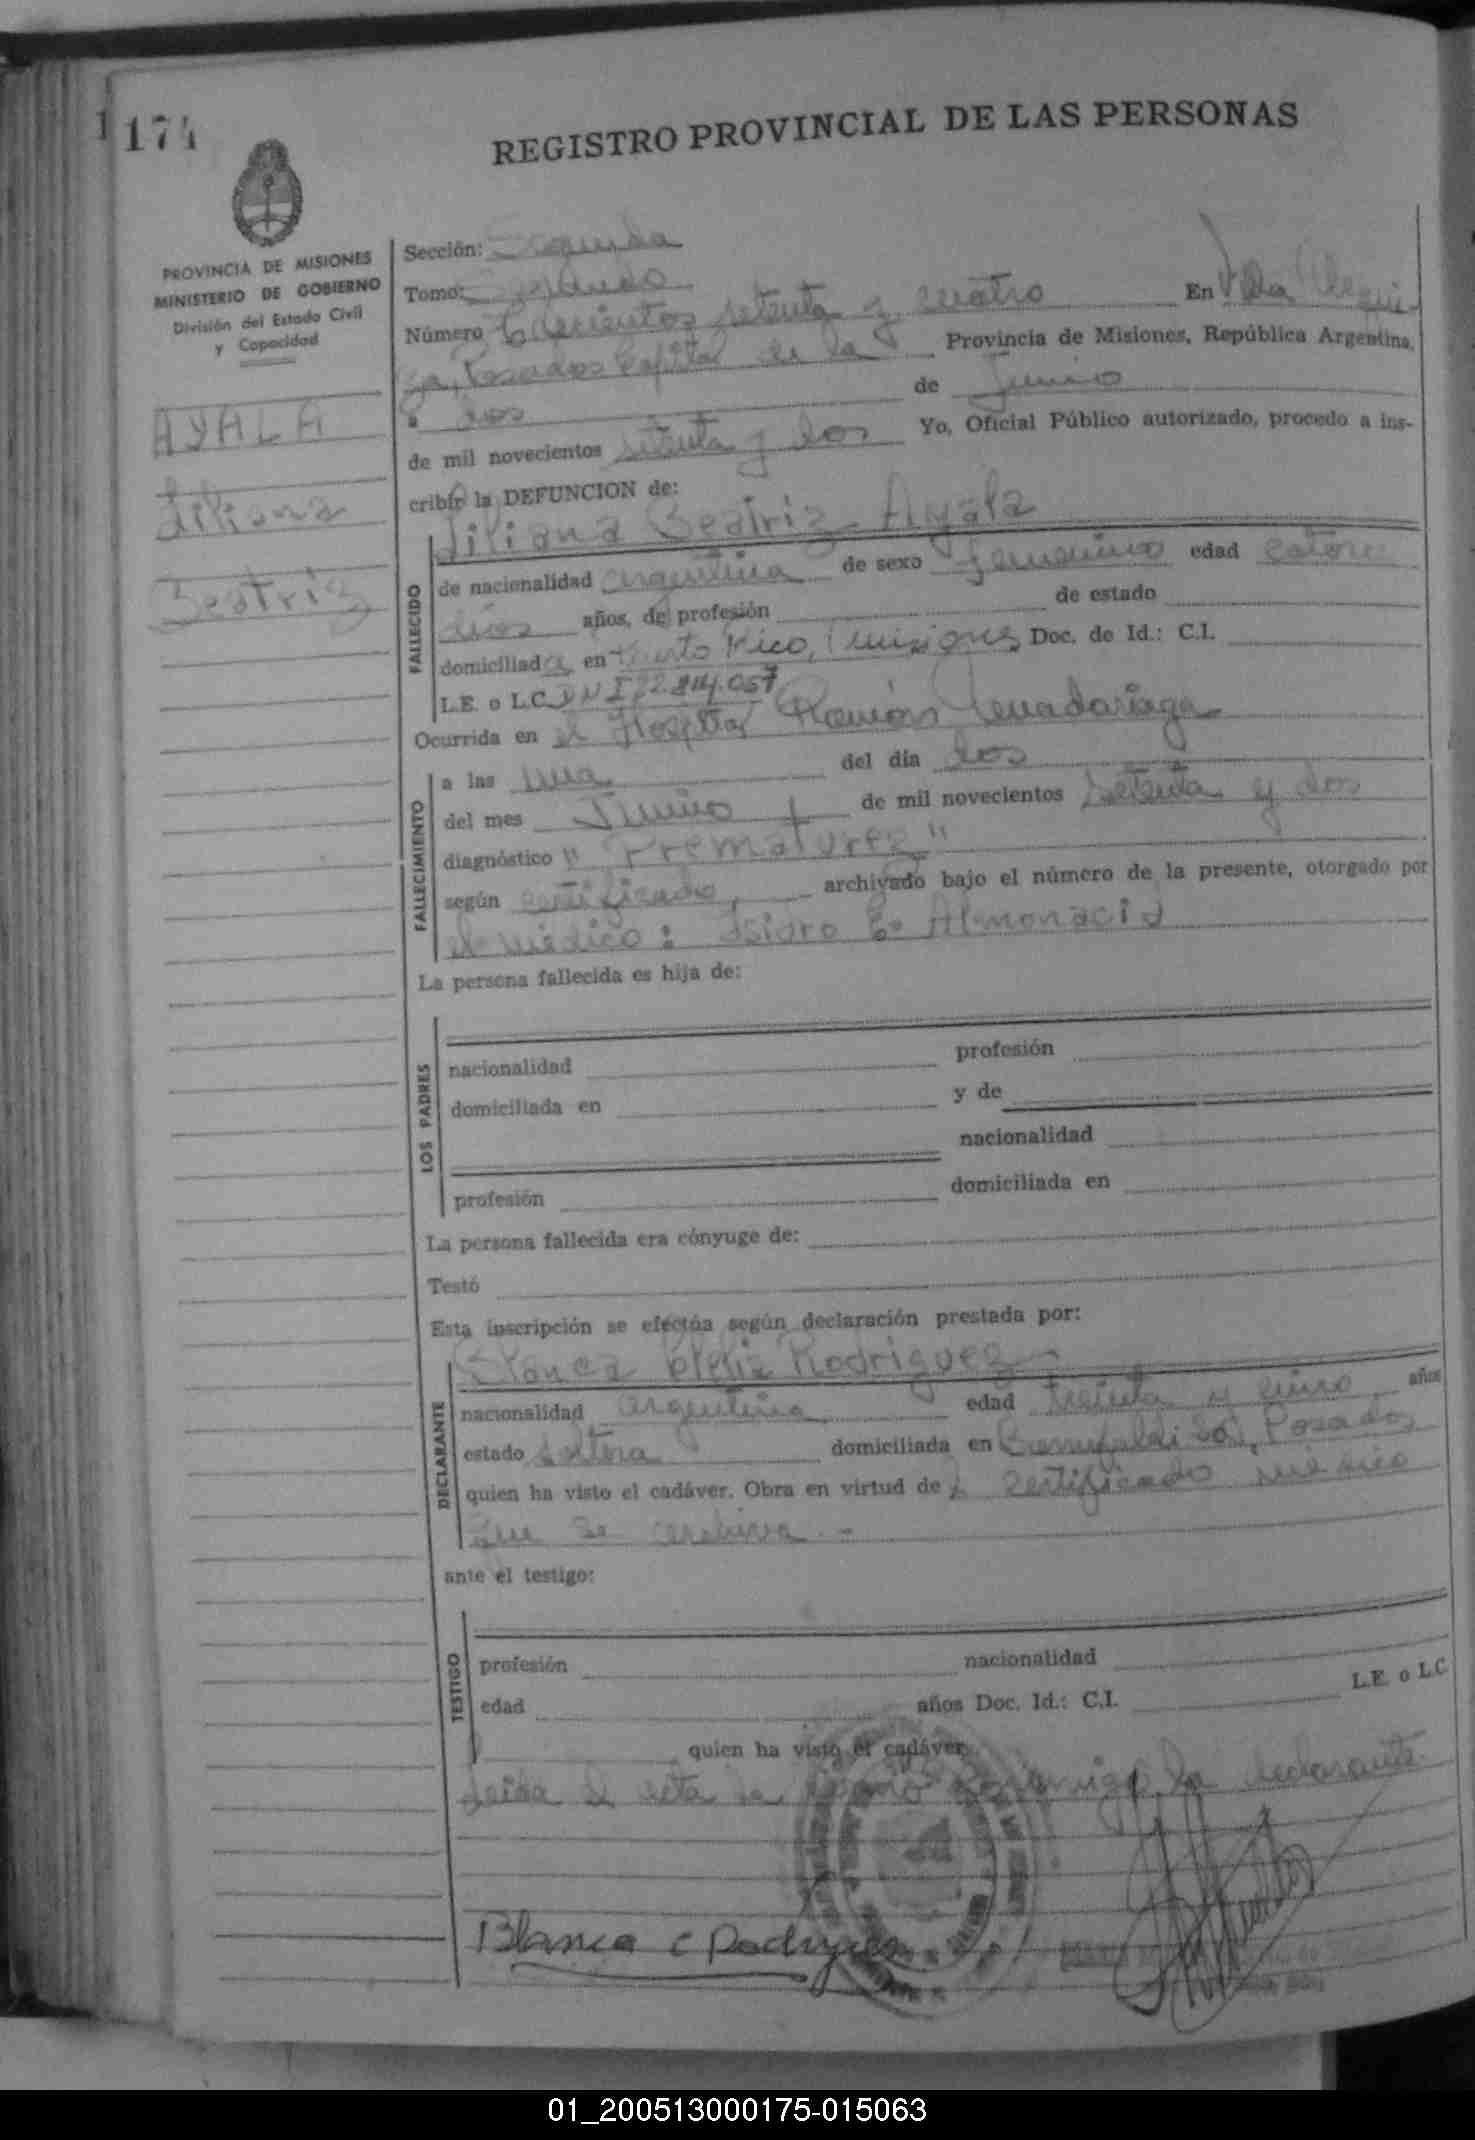 174
REGISTRO PROVINCIAL DE LAS PERSONAS
PROVINCIA DE MISIONES
MINISTERIO DE GOBIERNO
División del Estado Civil
y Capacidad
AYALA
Liliana
Beatriz
Sección: Segunda
Tomo: Segundo
Número setenta y cuatro En Villa Urqui-
za, Posadas Capital de la Provincia de Misiones, República Argentina,
a dos de Junio
de mil novecientos setenta y dos Yo, Oficial Público autorizado, procedo a ins-
cribir la DEFUNCION de:
Liliana Beatriz Ayala
FALLECIDO
de nacionalidad argentina de sexo femenino edad catorce
días años, de profesión de estado
domiciliada en Puerto Rico, Misiones Doc. de Id.: C.I.
L.E. o L.C. DNI 22.814.057
Ocurrida en el Hospital Ramón Madariaga
FALLECIMIENTO
a las una del día dos
del mes Junio de mil novecientos setenta y dos
diagnóstico "Prematurez"
según certificado, archivado bajo el número de la presente, otorgado por
el médico: Isidro Almonacid
La persona fallecida es hija de:
LOS PADRES
nacionalidad profesión
domiciliada en y de
nacionalidad
profesión domiciliada en
La persona fallecida era cónyuge de:
Testó
Esta inscripción se efectúa según declaración prestada por:
Blanca Clelia Rodriguez
DECLARANTE
nacionalidad argentina edad treinta y años
estado soltera domiciliada en Posadas
quien ha visto el cadáver. Obra en virtud de certificado médico
que se archiva.-
ante el testigo:
TESTIGO
profesión nacionalidad
edad años Doc. Id.: C.I. L.E. o L.C
quien ha visto el cadáver.
Leída el acta la firmó conmigo la declarante
Blanca C Rodriguez
01_200513000175-015063